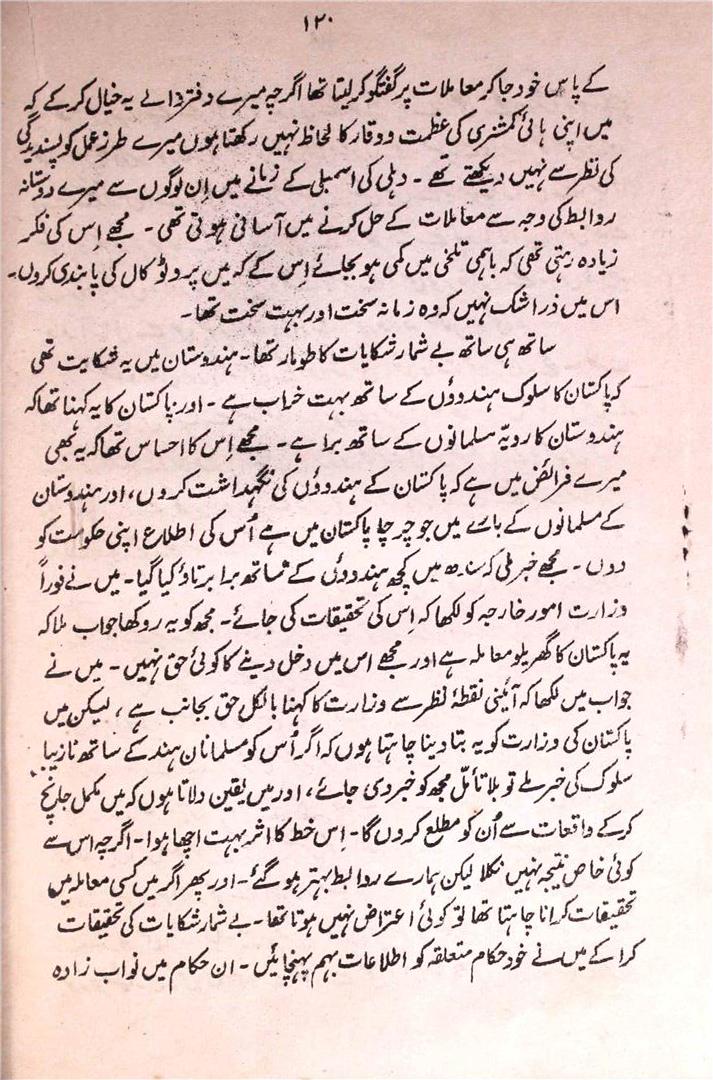 ۱۲۰
کے پاس خود جا کر معاملات پر گفتگو کر لیتا تھا اگرچہ میرے دفتر والے یہ خیال کر کے کہ
میں اپنی ہائی کمشنری کی عظمت و وقار کا لحاظ نہیں رکھتا ہوں میرے طرز عمل کو پسندیدگی
کی نظر سے نہیں دیکھتے تھے ۔ دہلی کی اسمبلی کے زمانے میں اِن لوگوں سے میرے دوستانہ
روابط کی وجہ سے معاملات کے حل کرنے میں آسانی ہوتی تھی ۔ مجھے اِس کی فکر
زیادہ رہتی تھی کہ باہمی تلخی میں کمی ہو بجائے اِس کے کہ میں پروٹوکال کی پابندی کروں۔
اس میں ذرا شک نہیں کہ وہ زمانہ سخت اور بہت سخت تھا ۔
ساتھ ہی ساتھ بے شمار شکایات کا طومار تھا ۔ ہندوستان میں یہ شکایت تھی
کہ پاکستان کا سلوک ہندوؤں کے ساتھ بہت خراب ہے ۔ اور پاکستان کا یہ کہنا تھا کہ
ہندوستان کا رویّہ مسلمانوں کے ساتھ برا ہے ۔ مجھے اِس کا احساس تھا کہ یہ بھی
میرے فرائض میں ہے کہ پاکستان کے ہندوؤں کی نگہداشت کروں ، اور ہندوستان
کے مسلمانوں کے بارے میں جو چرچا پاکستان میں ہے اُس کی اطلاع اپنی حکومت کو
دوں ۔ مجھے خبر ملی کہ سندھ میں کچھ ہندوؤں کے ساتھ برا برتاؤ کیا گیا ۔ میں نے فوراً
وزارت امور خارجہ کو لکھا کہ اِس کی تحقیقات کی جائے ۔ مجھ کو یہ روکھا جواب ملا کہ
یہ پاکستان کا گھریلو معاملہ ہے اور مجھے اس میں دخل دینے کا کوئی حق نہیں ۔ میں نے
جواب میں لکھا کہ آئینی نقطۂ نظر سے وزارت کا کہنا بالکل حق بجانب ہے ، لیکن میں
پاکستان کی وزارت کو یہ بتا دینا چاہتا ہوں کہ اگر اُس کو مسلمانان ہند کے ساتھ نازیبا
سلوک کی خبر ملے تو بلا تأمّل مجھ کو خبر دی جائے ، اور میں یقین دلاتا ہوں کہ میں مکمل جانچ
کر کے واقعات سے اُن کو مطلع کروں گا ۔ اِس خط کا اثر بہت اچھا ہوا ۔ اگرچہ اس سے
کوئی خاص نتیجہ نہیں نکلا لیکن ہمارے روابط بہتر ہو گئے ۔ اور پھر اگر میں کسی معاملہ میں
تحقیقات کرانا چاہتا تھا تو کوئی اعتراض نہیں ہوتا تھا ۔ بے شمار شکایات کی تحقیقات
کرا کے میں نے خود حکام متعلقہ کو اطلاعات بہم پہنچائیں ۔ ان حکام میں نواب زادہ